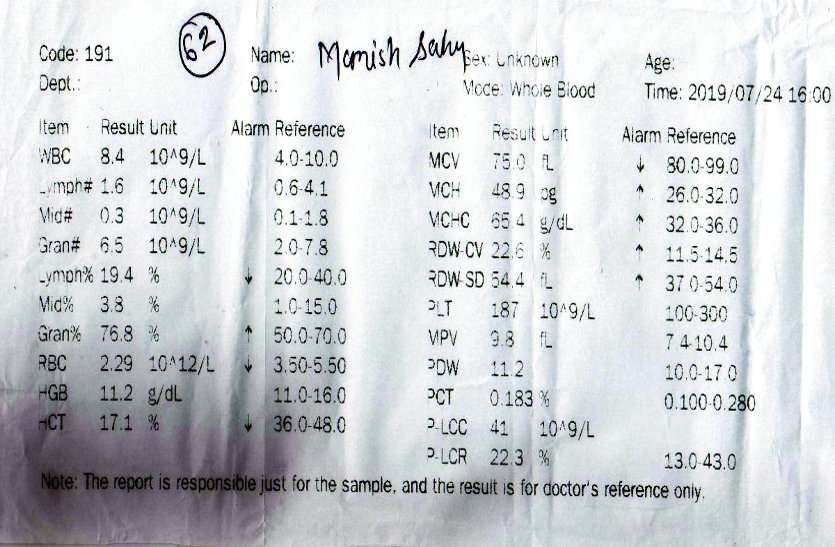 Code: 191 62 Name: Manish Sahy Sex: Unknown Age:
Dept.: Op.: Mode: Whole Blood Time: 2019/07/24 16:00
Item Result Unit Alarm Reference Item Result Unit Alarm Reference
WBC 8.4 10^9/L 4.0-10.0 MCV 75.0 fL ↓ 80.0-99.0
Lymph# 1.6 10^9/L 0.6-4.1 MCH 48.9 pg ↑ 26.0-32.0
Mid# 0.3 10^9/L 0.1-1.8 MCHC 65.4 g/dL ↑ 32.0-36.0
Gran# 6.5 10^9/L 2.0-7.8 RDW-CV 22.6 % ↑ 11.5-14.5
Lymph% 19.4 % ↓ 20.0-40.0 RDW-SD 54.4 fL ↑ 37.0-54.0
Mid% 3.8 % 1.0-15.0 PLT 187 10^9/L 100-300
Gran% 76.8 % ↑ 50.0-70.0 MPV 9.8 fL 7.4-10.4
RBC 2.29 10^12/L ↓ 3.50-5.50 PDW 11.2 10.0-17.0
HGB 11.2 g/dL 11.0-16.0 PCT 0.183 % 0.100-0.280
HCT 17.1 % ↓ 36.0-48.0 P-LCC 41 10^9/L
P-LCR 22.3 % 13.0-43.0
Note: The report is responsible just for the sample, and the result is for doctor's reference only.